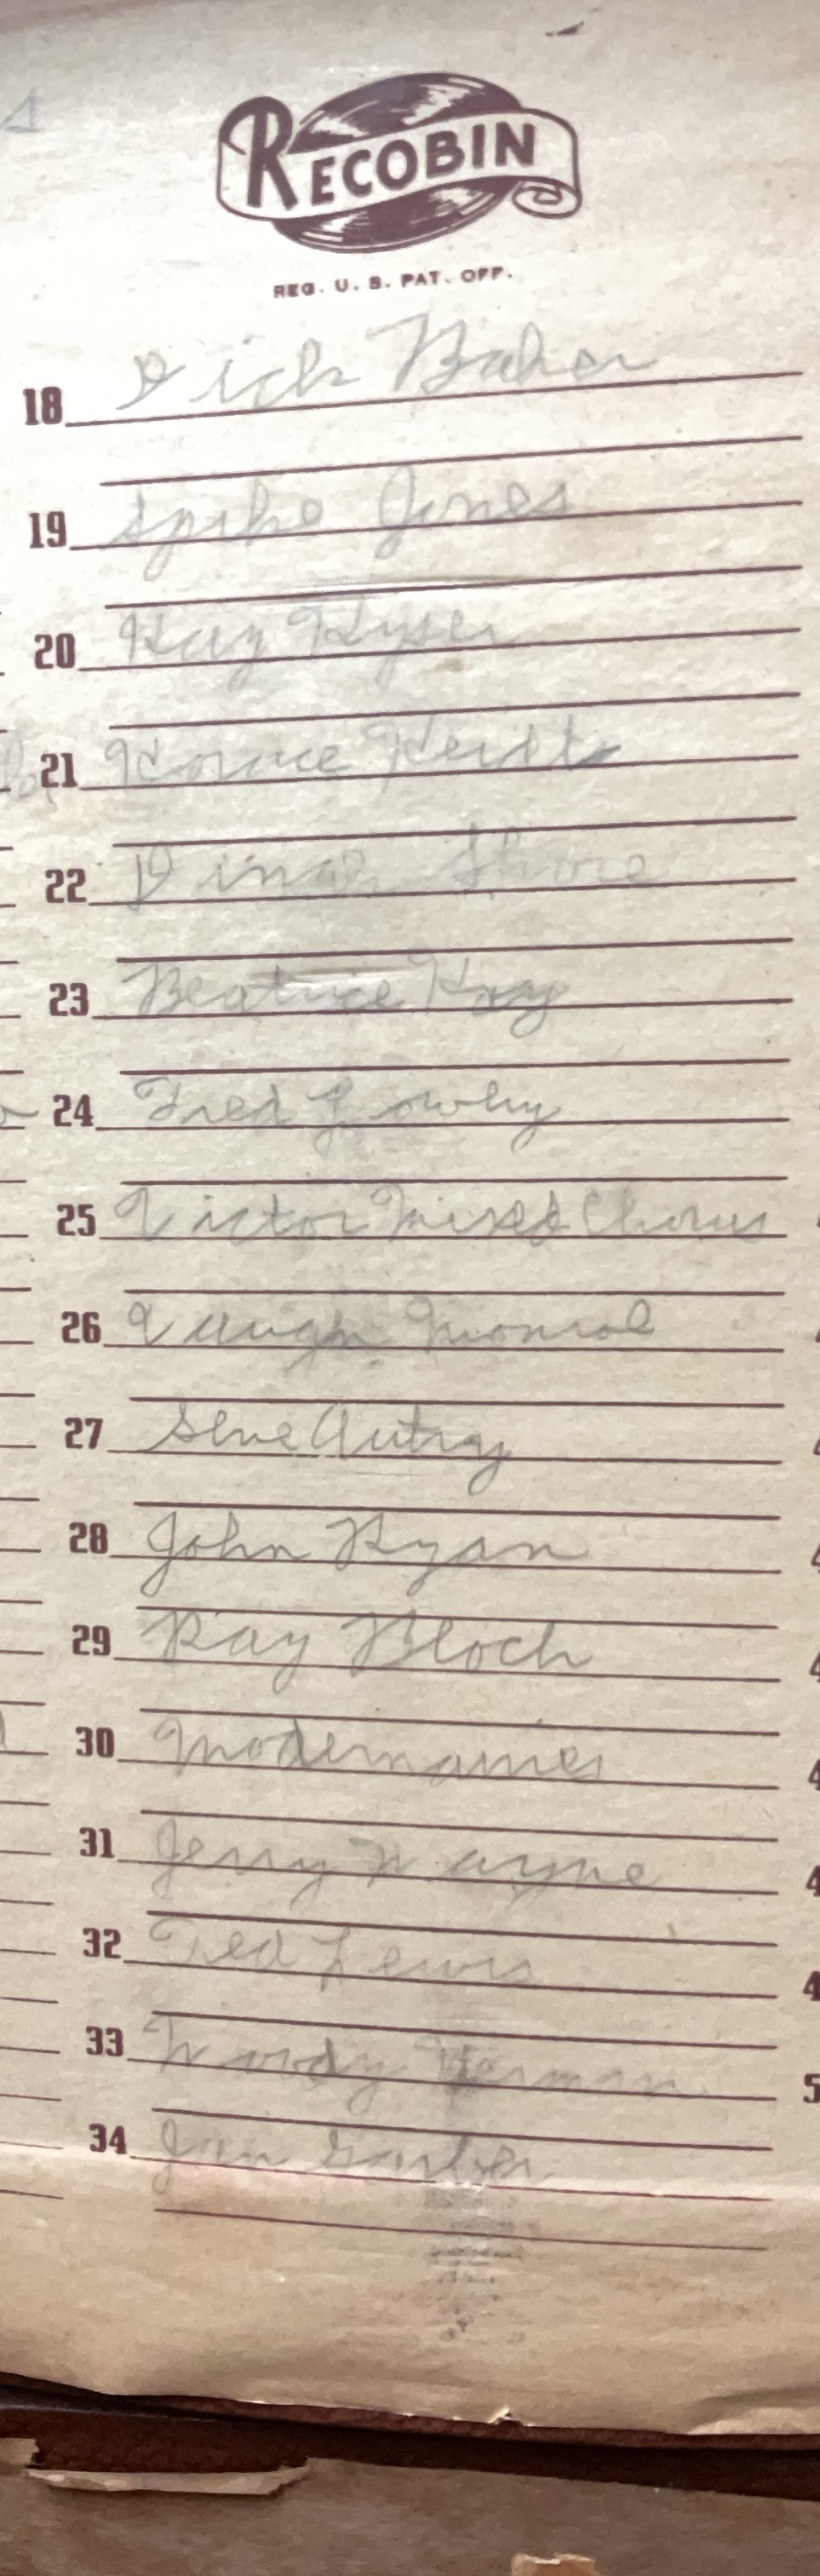 RECOBIN
REG. U. S. PAT. OFF.
18 Dick Baker
19 Spike Jones
20 Kay Kyser
21 Horace Heidt
22 Dinah Shore
23 Beatrice Kay
24 Fred Lowery
25 Victor Mixed Chorus
26 Vaughn Monroe
27 Gene Autry
28 John Ryan
29 Ray Bloch
30 Modernaires
31 Jerry Wayne
32 Ted Lewis
33 Woody Herman
34 Jan Garber